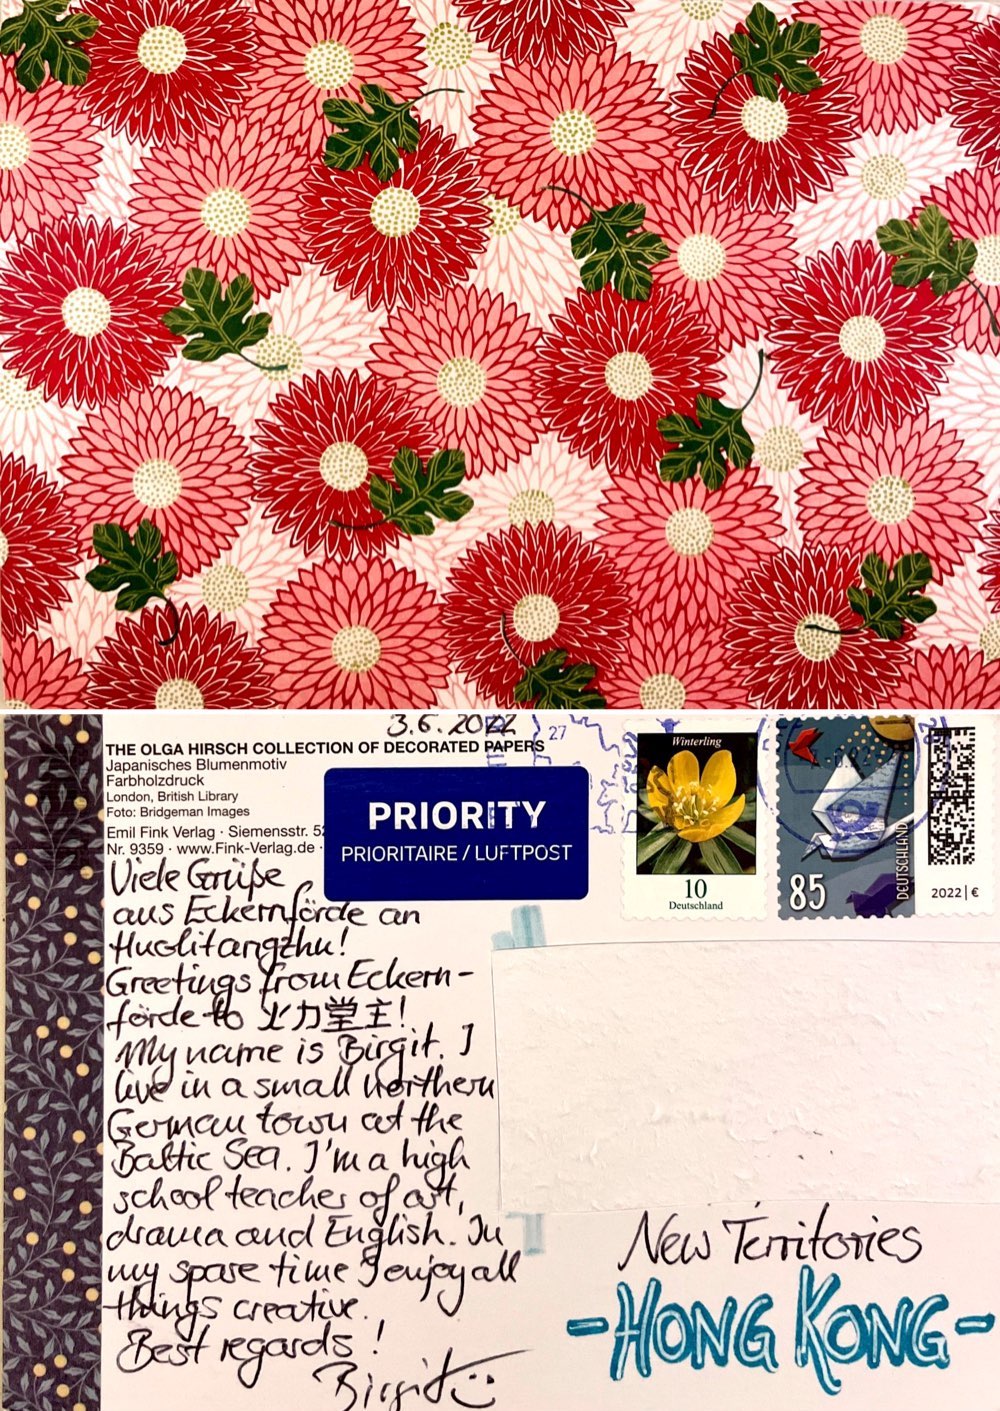 3.6.2022
THE OLGA HIRSCH COLLECTION OF DECORATED PAPERS
Japanisches Blumenmotiv
Farbholzdruck
London, British Library
Foto: Bridgeman Images
Emil Fink Verlag · Siemensstr.
Nr. 9359 · www.Fink-Verlag.de ·
PRIORITY
PRIORITAIRE / LUFTPOST
27
Winterling
10
Deutschland
85
DEUTSCHLAND
2022 | €
Viele Grüße
aus Eckernförde an
Huolitangzhu!
Greetings from Eckern-
förde to 火力堂主!
My name is Birgit. I
live in a small northern
German town at the
Baltic Sea. I'm a high
school teacher of art,
drama and English. In
my spare time I enjoy all
things creative.
Best regards!
Birgit
New Territories
-HONG KONG-